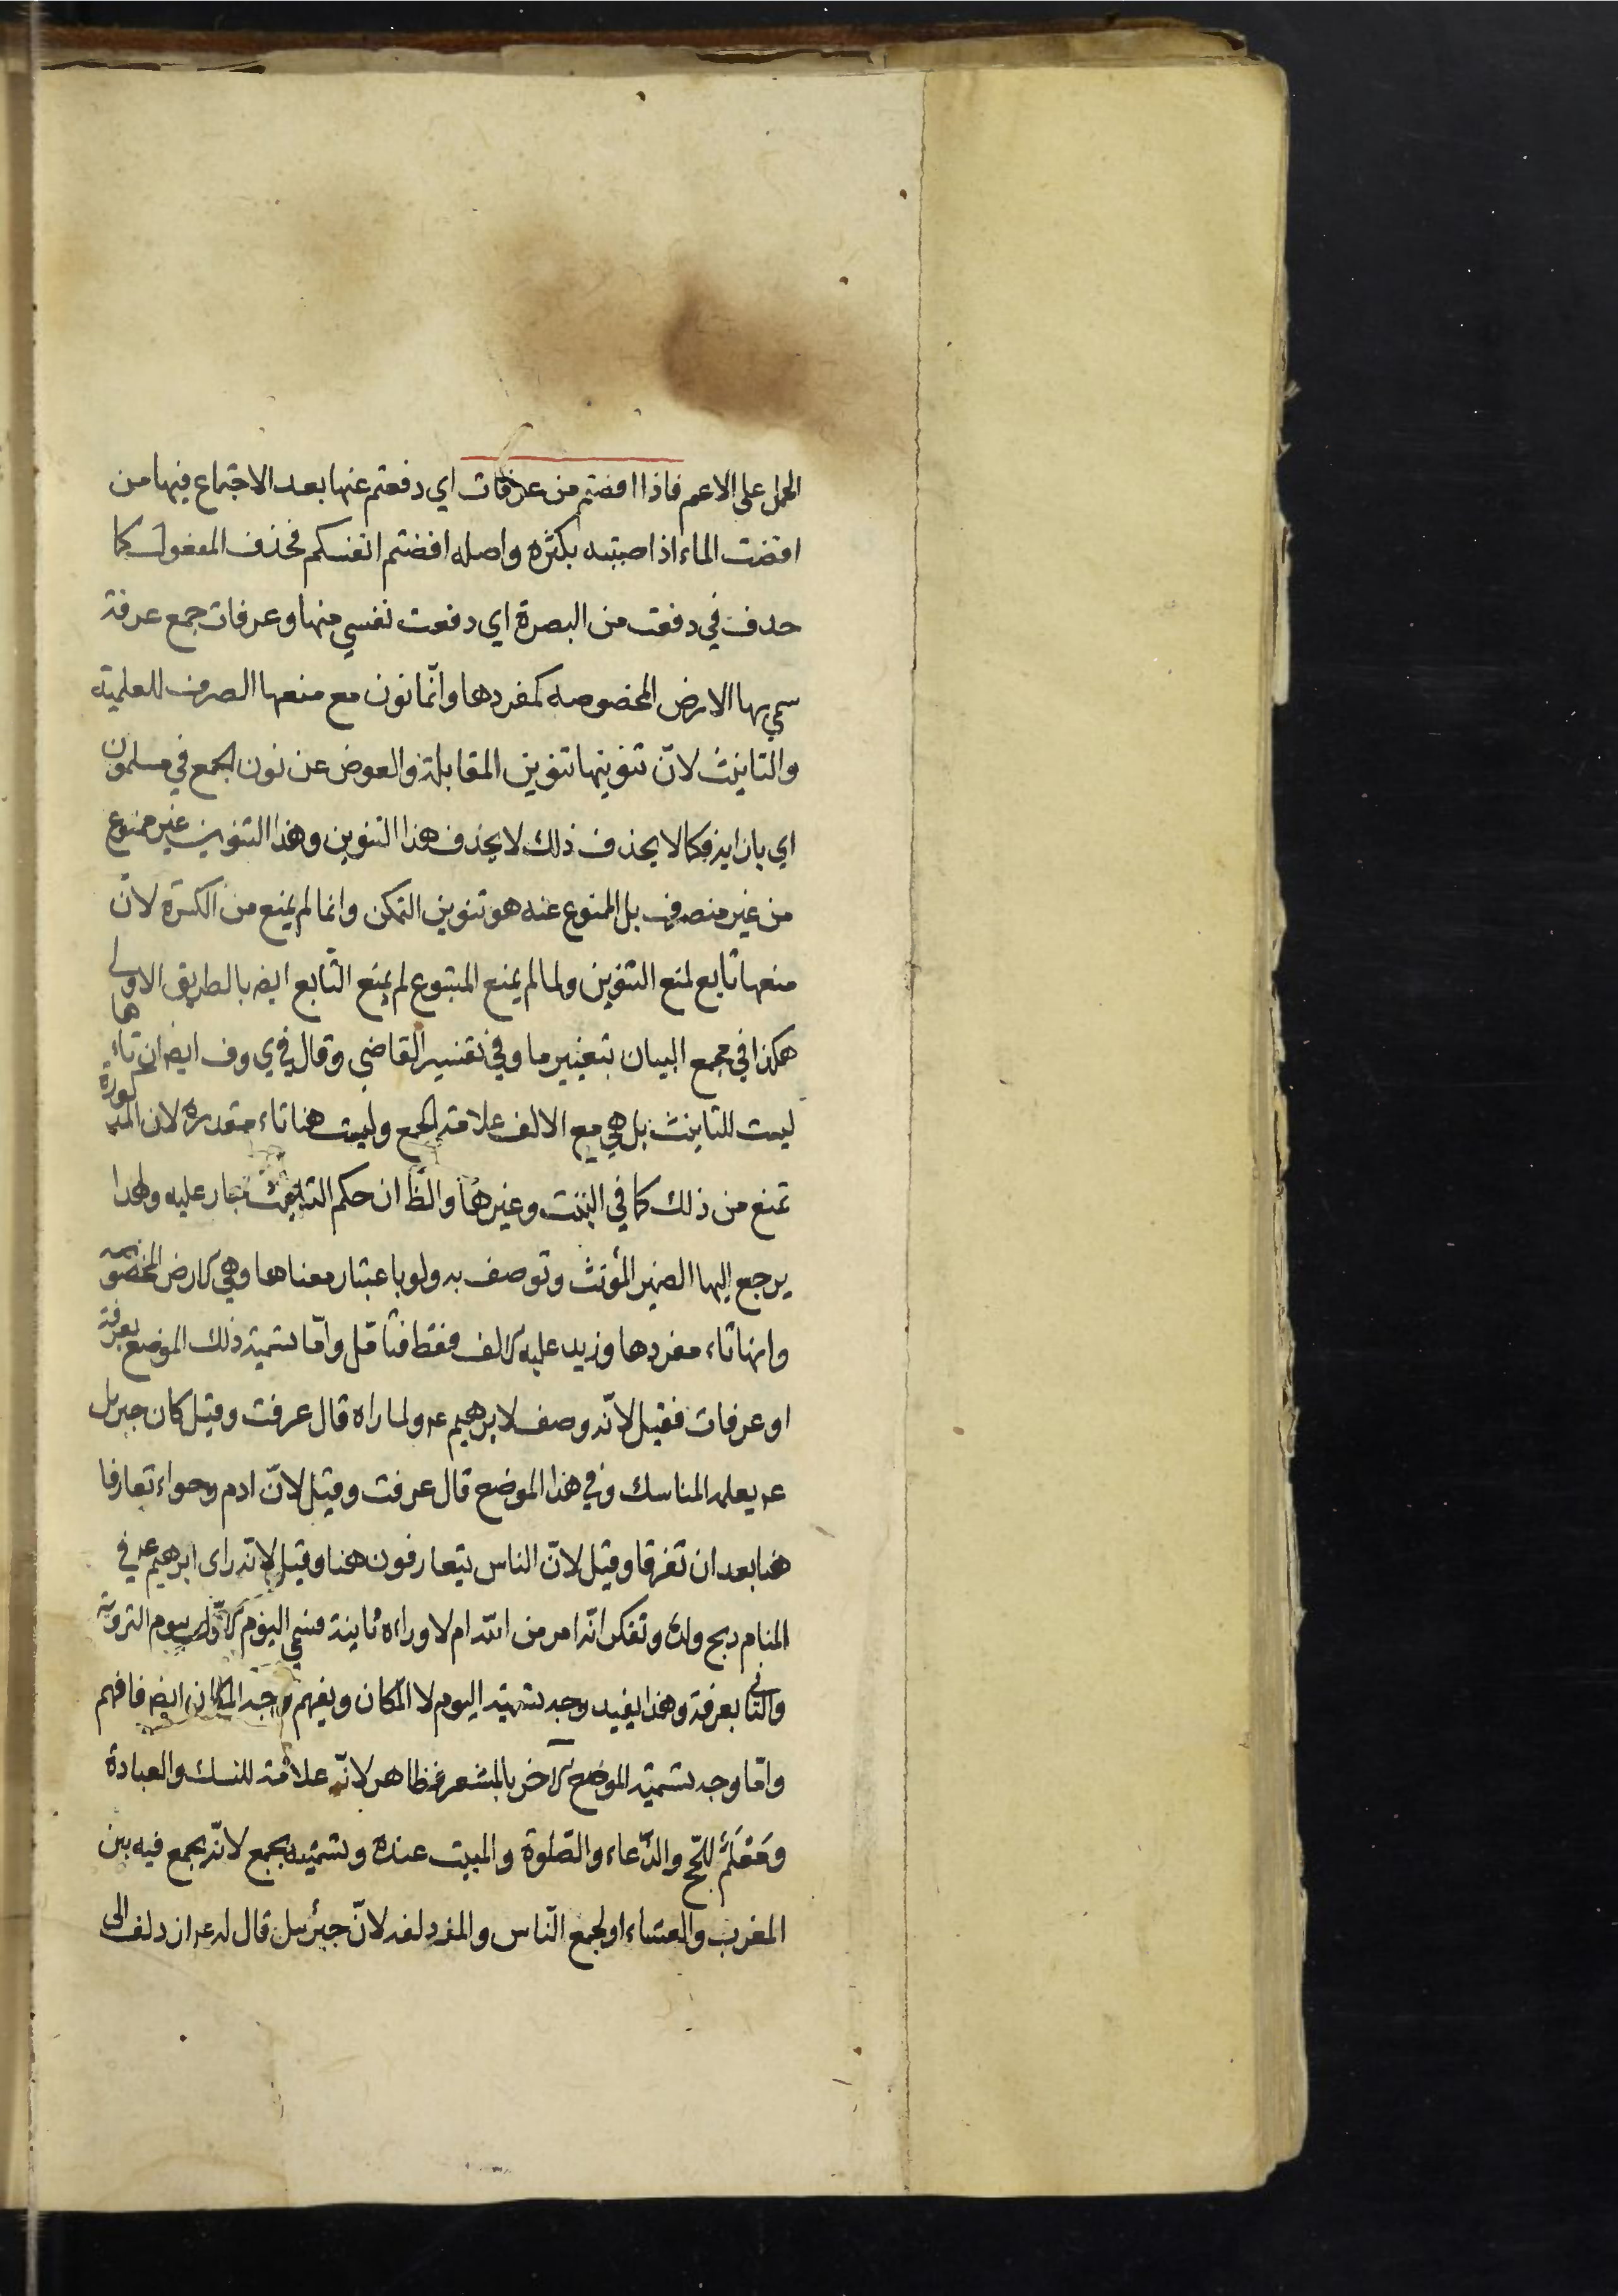 الحمل على الاعم فاذا افضتم من عرفات اي دفعتم عنها بعد الاجتماع فيها من
افضت الماء اذا صببته بكثره واصله افضتم انفسكم فحذف المفعول كما
حذف في دفعت من البصرة اي دفعت نفسي منها وعرفات جمع عرفة
سمي بها الارض المخصوصه كمفردها وانّما نون مع منعها الصرف للعلميّة
والتانيث لانّ تنوينها تنوين المقابلة والعوض عن نون الجمع في مسلمون
اي بازايه فكما لا يحذف ذلك لا يحذف هذا التنوين وهذا التنوين غير ممنوع
من غير منصرف بل الممنوع عنه هو تنوين التمكن وانما لم يمنع من الكسرة لانّ
منعها تابع لمنع التنوين ولما لم يمنع المتبوع لم يمنع التّابع ايضا بالطريق الاولى
هكذا في مجمع البيان بتغيير ما وفي تفسير القاضي وقال في ي وف ايضا ان تاءها
ليست للتانيث بل هي مع الالف علامة الجمع وليست هنا تاء مقدره لان المذكورة
تمنع من ذلك كما في البنت وغيرها والظّ ان حكم التانيث جار عليه ولهذا
يرجع اليها الضمير المؤنث وتوصف به ولو باعتبار معناها وهي الارض المخصوصه
وانها تاء مفردها وزيد عليه الالف فقط فتامّل وامّا تسمية ذلك الموضع بعرفة
او عرفات فقيل لانّه وصف لابرهيم عه ولما راه قال عرفت وقيل كان جبريل
عه يعلمه المناسك وفي هذا الموضع قال عرفت وقيل لانّ ادم وحواء تعارفا
هنا بعد ان تفرقا وقيل لانّ الناس يتعارفون هنا وقيل لانّه راى ابرهيم عه في
المنام ذبح ولده وتفكر انّه امر من الله ام لا وراه ثانية فسمي اليوم الاول بيوم الترويّة
والثاني بعرفة وهذا يفيد وجه تسمية اليوم لا المكان ويفهم وجه المكان ايضا فافهم
وامّا وجه تسمية الموضع الاخر بالمشعر فظاهر لانّه علامة للنسك والعبادة
ومَعْلَمٌ للحّج والدّعاء والصّلوة والمبيت عنده وتسميته بجمع لانّه يجمع فيه بين
المغرب والعشاء او لجمع النّاس والمزدلفه لانّ جبرئيل قال له عه ازدلف الى